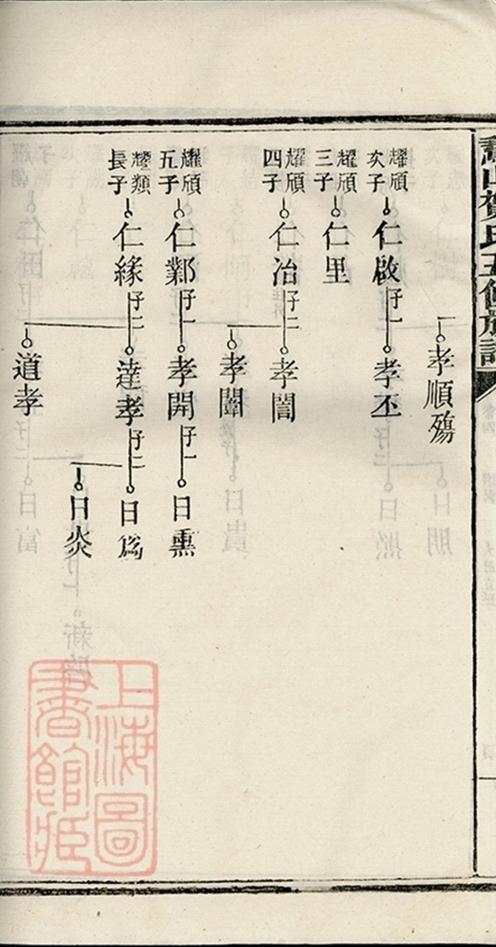 孝順殤
耀頎
次子
仁啟
子一
孝丕
耀頎
三子
仁里
耀頎
四子
仁冶
子二
孝誾
孝闈
耀頎
五子
仁鄴
子一
孝開
子一
日熏
耀類
長子
仁緣
子二
達孝
子二
日為
日炎
道孝
上海圖
書館藏